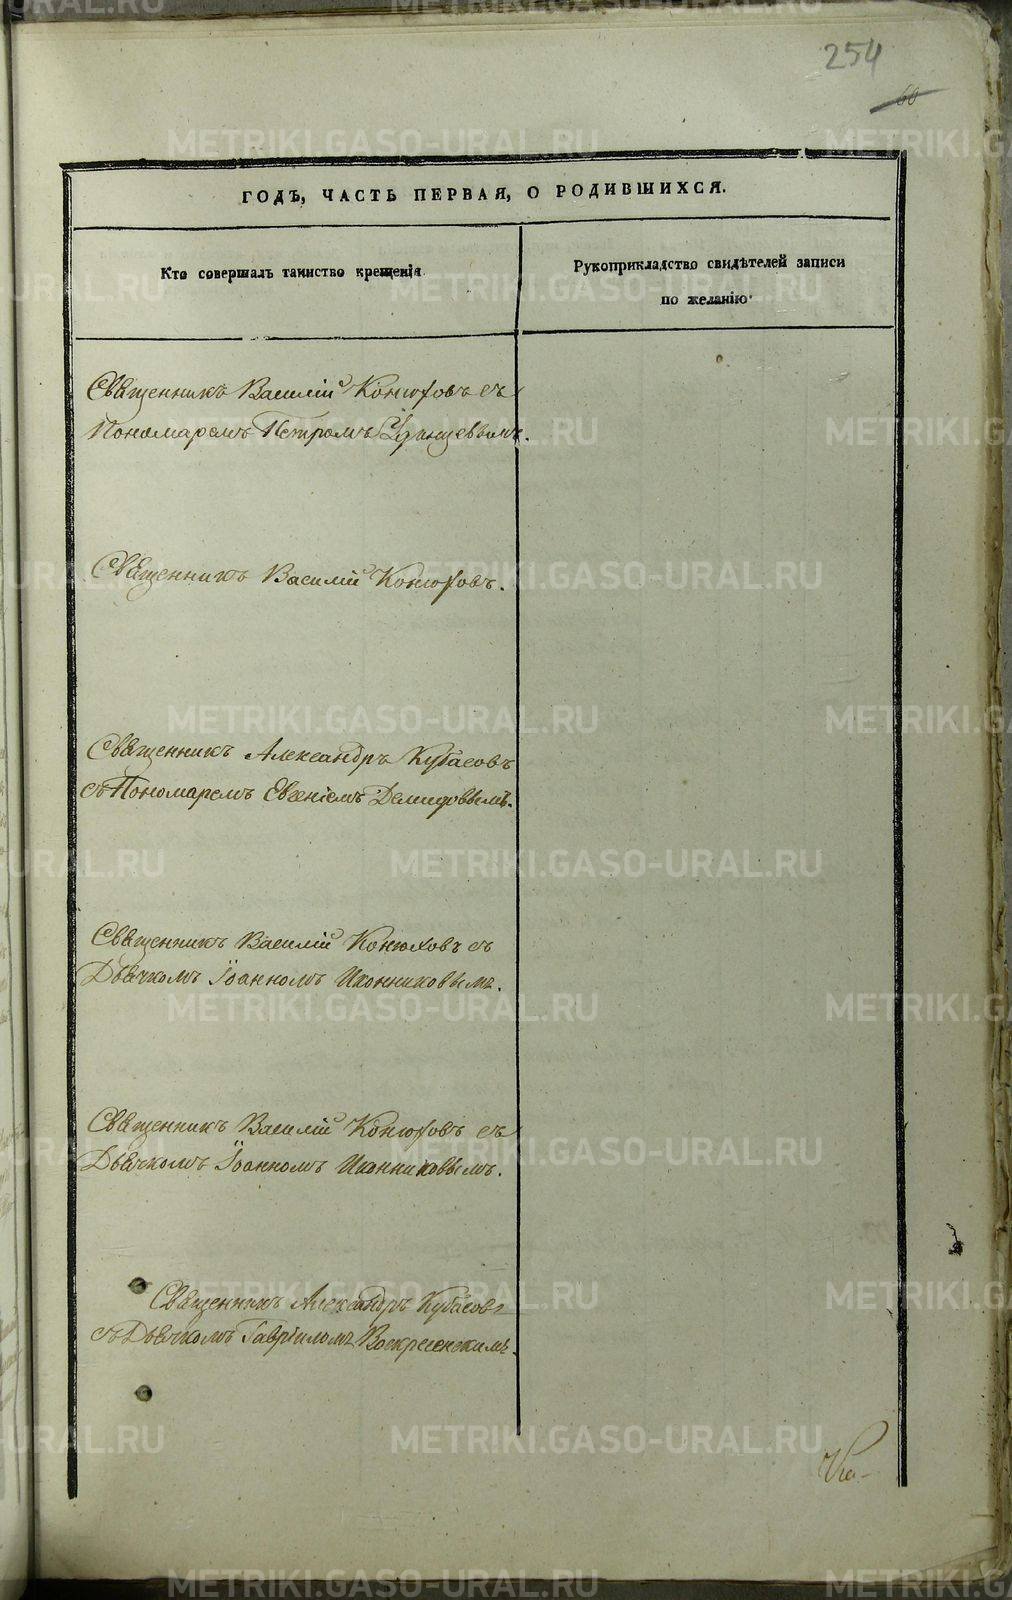 254
60
ГОДЪ, ЧАСТЬ ПЕРВАЯ, О РОДИВШИХСЯ.
Кто совершалъ таинство крещенія
Рукоприкладство свидѣтелей записи
по желанію
Священникъ Василій Конюховъ съ
Пономаремъ Петромъ
Священникъ Василій Конюховъ.
Священникъ Александръ Кубасовъ
съ Пономаремъ Евгеніемъ Демидовымъ.
Священникъ Василій Конюховъ съ
Дьячкомъ Іоанномъ Иконниковымъ.
Священникъ Василій Конюховъ съ
Дьячкомъ Іоанномъ Иконниковымъ.
Священникъ Александръ Кубасовъ
съ Дьячкомъ Гавріиломъ Воскресенскимъ.
METRIKI.GASO-URAL.RU